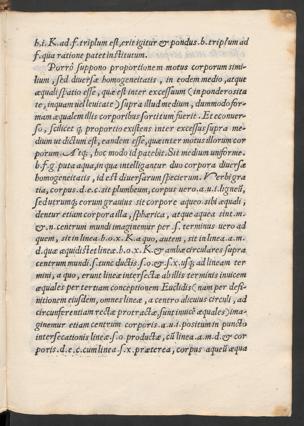 b.i.K.ad.f.triplum est, erit igitur & pondus.b.triplum ad
f.qua ratione patet institutum.
Porrò suppono proportionem motus corporum simi-
lium, sed diuersæ homogeneitatis, in eodem medio, atque
æquali spatio esse, quæ est inter excessuum (in ponderosita
te, inquam uel leuitate) suprà illud medium, dummodo for-
mam æqualem illis corporibus sortitum fuerit. Et conuer-
so, scilicet q; proportio existens inter excessus supra me-
dium ut dictum est, eandem esse, quæ inter motus illorum cor
porum. Atq;, hoc modo id patebit. Sit medium uniforme.
b.f.g.puta aqua, in qua intelligantur duo corpora diuersæ
homogeneitatis, id est diuersarum specierum. Verbi gra
tia, corpus.d.e.c. sit plumbeum, corpus uero.a.u.i. ligneū,
sed utrumq; eorum grauius sit corpore aqueo sibi æquali,
dentur etiam corpora illa, sphærica, atque aquea sint.m.
& n. centrum mundi imaginemur per.s. terminus uero ad
quem, sit in linea.b.o.x. K. a quo, autem, sit in linea.a.m.
d. quæ æquidistet lineæ.b.o.x. K. & ambæ circulares supra
centrum mundi.s. tunc ductis.s.o. & s.x. usq; ad lineam ter
mini, a quo, erunt lineæ intersectæ ab illis terminis inuicem
æquales per tertiam conceptionem Euclidis (nam per defi-
nitionem eiusdem, omnes lineæ, a centro alicuius circuli, ad
circunferentiam rectæ protractæ, sunt inuicē æquales) ima-
ginemur etiam centrum corporis.a.u.i. positum in puncto
intersecationis lineæ.s.o. productæ, cū linea.a.m.d. & cor
poris.d.e.c. cum linea.s.x. præterea, corpus aqueū æqua